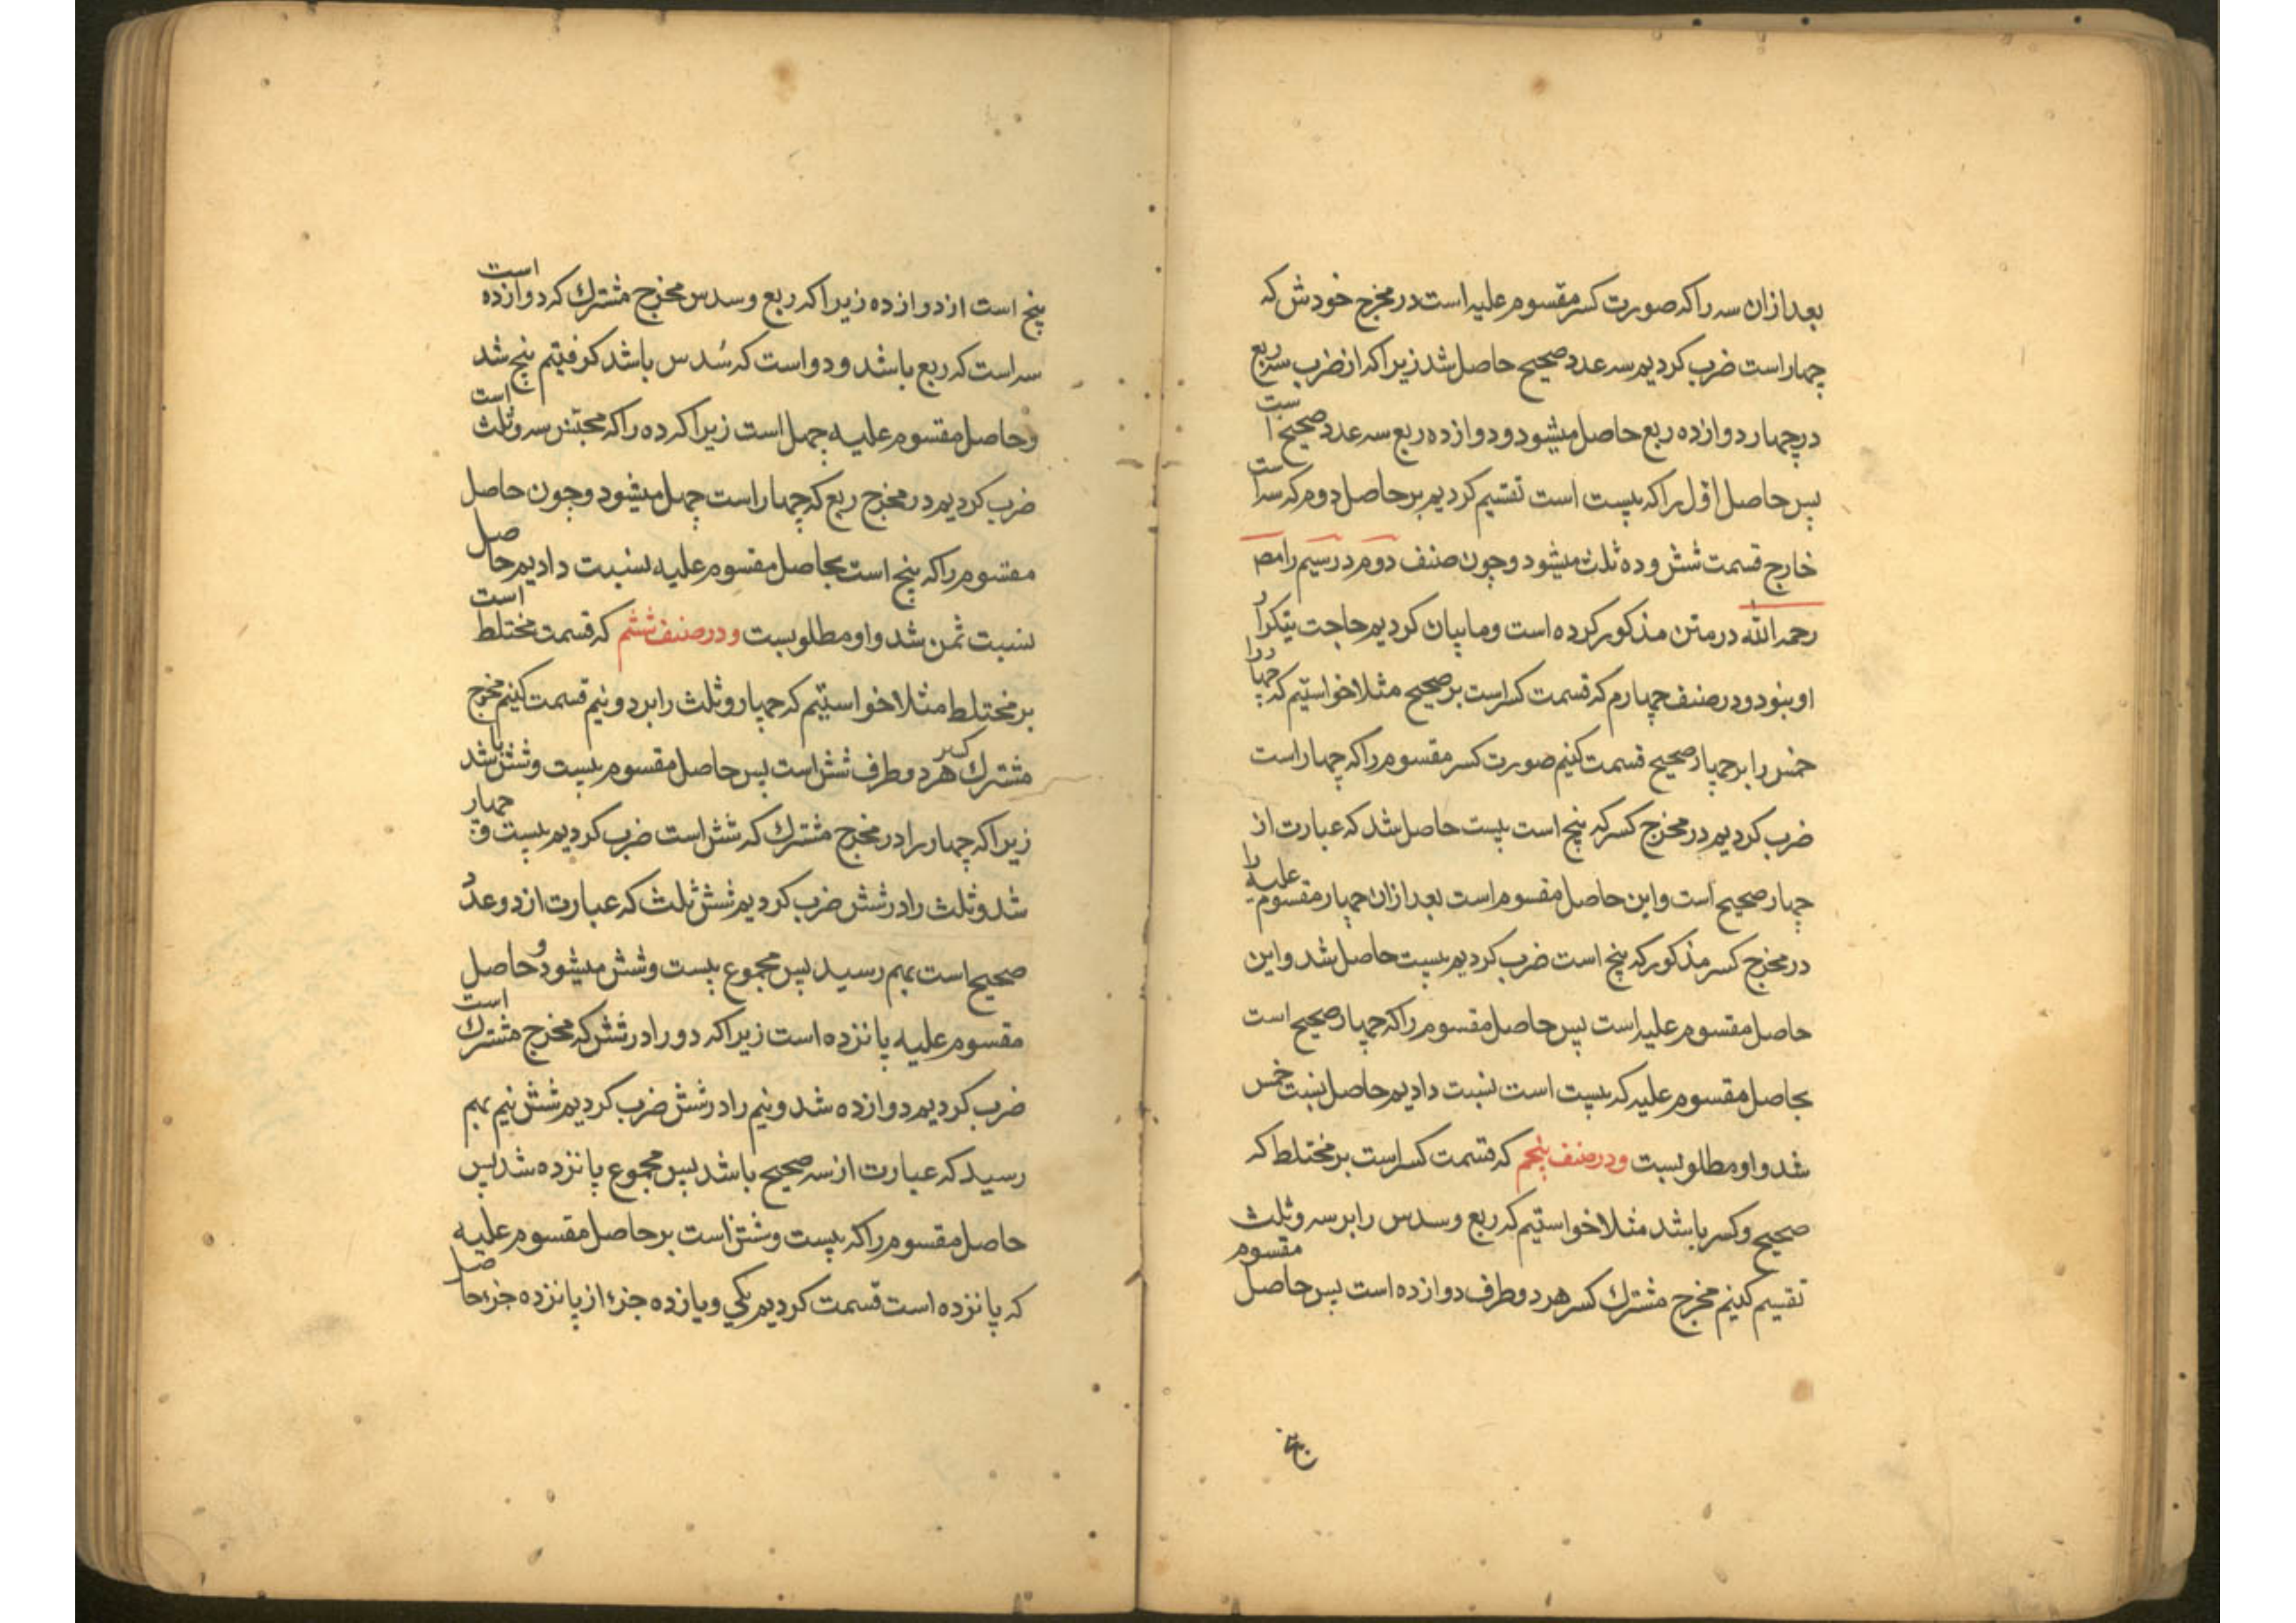 بعد ازان سه را که صورت کسر مقسوم علیه است در مخرج خودش که
چهار است ضرب کردیم سه عدد صحیح حاصل شد زیرا که از ضرب سه ربع
در چهار دوازده ربع حاصل میشود و دوازده ربع سه عدد صحیح است
پس حاصل اول را که بیست است تقسیم کردیم بر حاصل دوم که سه است
خارج قسمت شش و ده ثلث میشود و چون صنف دوم در سیم را مصـ
رحمه الله در متن مذکور کرده است و ما بیان کردیم حاجت بتکرار
او بنود و در صنف چهارم که قسمت کسر است بر صحیح مثلا خواستیم که چهار
خمس را بر چهار صحیح قسمت کنیم صورت کسر مقسوم را که چهار است
ضرب کردیم در مخرج کسر که پنج است بیست حاصل شد که عبارت از
چهار صحیح است و این حاصل مقسوم است بعد ازان چهار مقسوم علیه را
در مخرج کسر مذکور که پنج است ضرب کردیم بیست حاصل شد و این
حاصل مقسوم علیه است پس حاصل مقسوم را که چهار صحیح است
بحاصل مقسوم علیه که بیست است نسبت دادیم حاصل نسبت خمس
شد و او مطلوبست و در صنف پنجم که قسمت کسر است بر مختلط که
صحیح و کسر باشد مثلا خواستیم که ربع و سدس را بر سه و ثلث
تقسیم کنیم مخرج مشترك کسر هر دو طرف دوازده است پس حاصل مقسوم
پنج
پنج است از دوازده زیرا که ربع و سدس مخرج مشترك که دوازده است
سه است که ربع باشد و دو است که سُدس باشد که گرفتیم پنج شد
و حاصل مقسوم علیه چهل است زیرا که ده را که مجنّس سه و ثلث است
ضرب کردیم در مخرج ربع که چهار است چهل میشود و چون حاصل
مقسوم را که پنج است بحاصل مقسوم علیه نسبت دادیم حاصل
نسبت ثمن شد و او مطلوبست و در صنف ششم که قسمت مختلط است
بر مختلط مثلا خواستیم که چهار و ثلث را بر دو و نیم قسمت کنیم مخرج
مشترك کسر هر دو طرف شش است پس حاصل مقسوم بیست و شش باشد
زیرا که چهار را در مخرج مشترك که شش است ضرب کردیم بیست و چهار
شد و ثلث را در شش ضرب کردیم شش ثلث که عبارت از دو عدد
صحیح است بهم رسید پس مجموع بیست و شش میشود و حاصل
مقسوم علیه پانزده است زیرا که دو را در شش که مخرج مشترك است
ضرب کردیم دوازده شد و نیم را در شش ضرب کردیم شش نیم بهم
رسید که عبارت از سه صحیح باشد پس مجموع پانزده شد پس
حاصل مقسوم را که بیست و شش است بر حاصل مقسوم علیه
که پانزده است قسمت کردیم یکی و یازده جزء از پانزده جزء حاصل